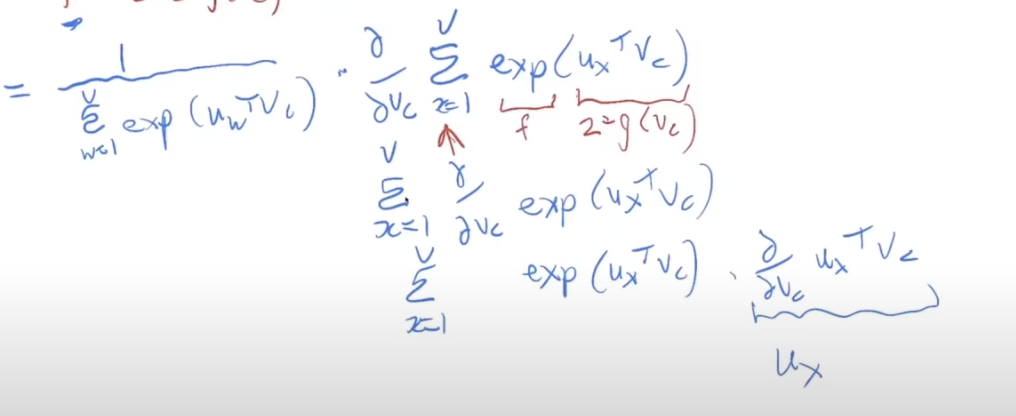 = 1 / Σ_{w=1}^{V} exp(u_w^T v_c) · ∂/∂v_c Σ_{x=1}^{V} exp(u_x^T v_c)
f z=g(v_c)
Σ_{x=1}^{V} ∂/∂v_c exp(u_x^T v_c)
Σ_{x=1}^{V} exp(u_x^T v_c) · ∂/∂v_c u_x^T v_c
u_x